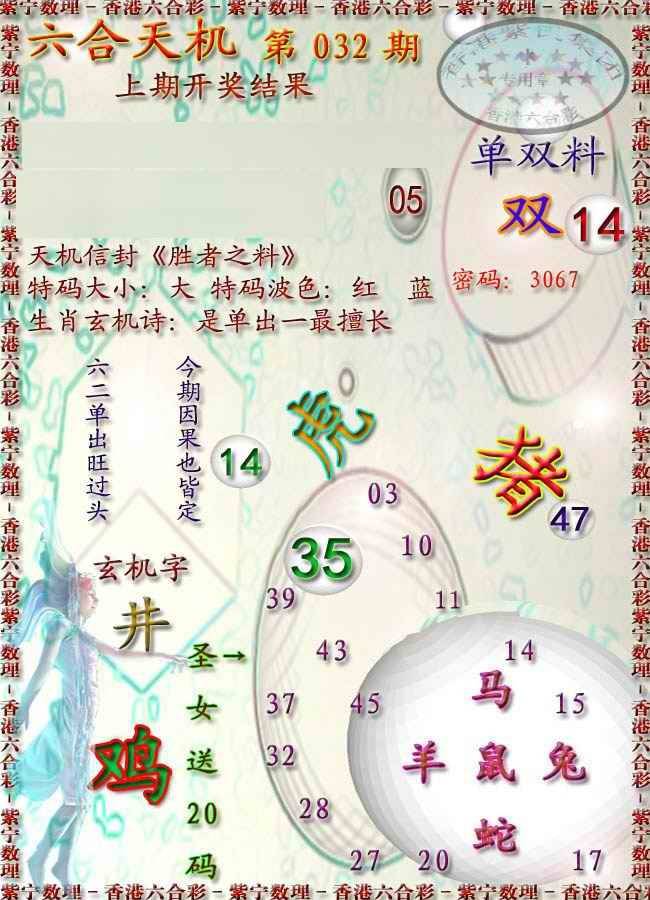 紫宁数理－香港六合彩－紫宁数理－香港六合彩－紫宁数理－香港六合彩
六合天机 第 032 期
上期开奖结果
专用章
香港六合彩
单双料
双 14
05
天机信封《胜者之料》
特码大小: 大 特码波色: 红 蓝
密码: 3067
生肖玄机诗: 是单出一最擅长
今期因果也皆定
六二单出旺过头
14
虎
猪
47
03
35
10
玄机字
井
39
11
圣女送20码
→
43
14
马
37
45
15
鸡
32
羊 鼠 兔
28
蛇
27
20
17
紫宁数理－香港六合彩－紫宁数理－香港六合彩－紫宁数理－香港六合彩